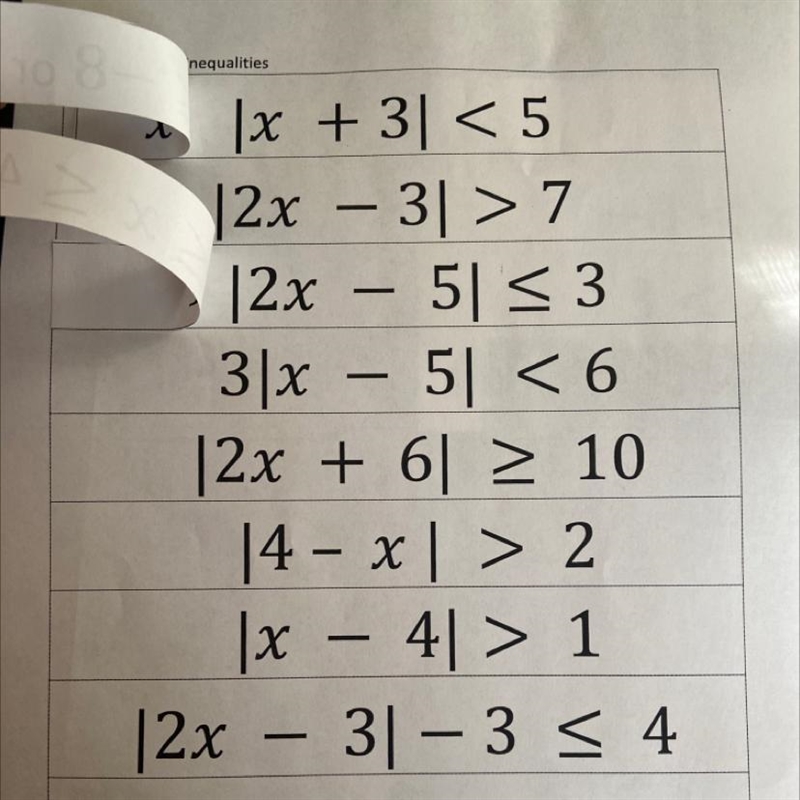 nequalities
|x + 3| < 5
|2x – 3| > 7
|2x – 5| ≤ 3
3|x – 5| < 6
|2x + 6| ≥ 10
|4 – x | > 2
|x – 4| > 1
|2x – 3| – 3 ≤ 4